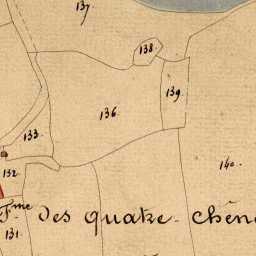 137
138
139
136
133
140
132
Fme Des quatre chên
131